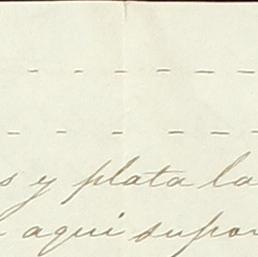 s y plata la
aqui supon